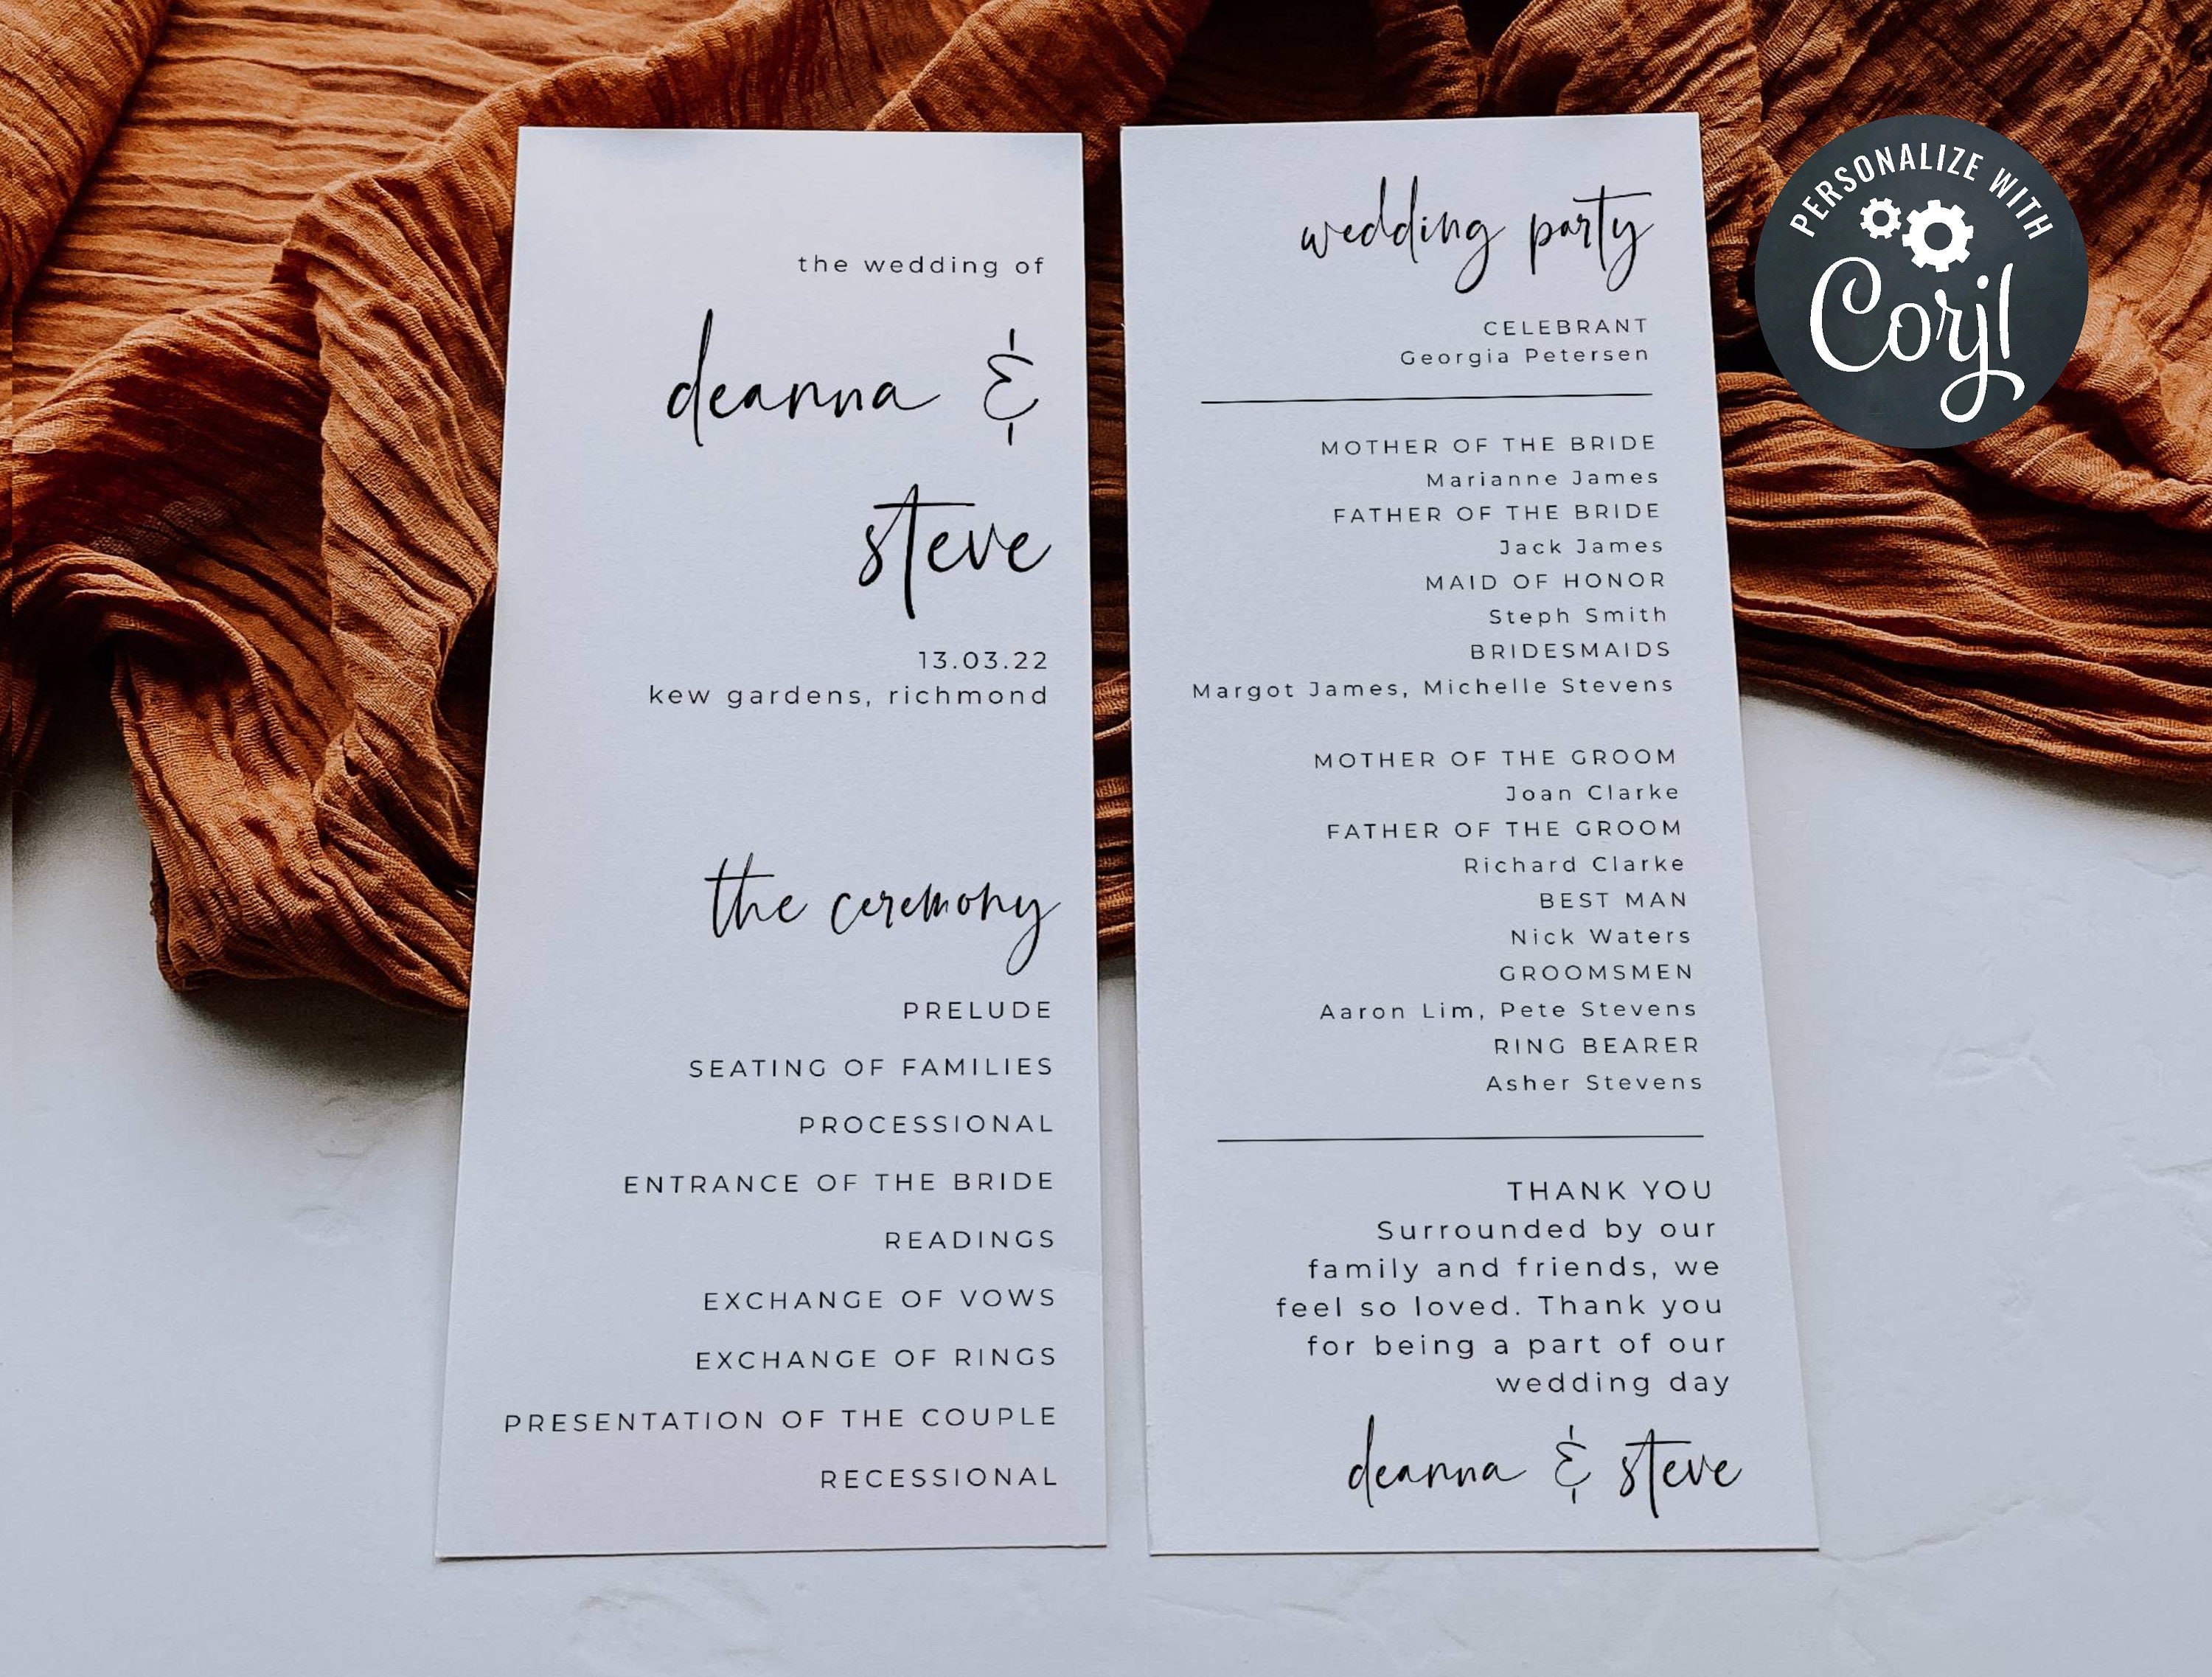 the wedding of
deanna &
steve
13.03.22
kew gardens, richmond
the ceremony
PRELUDE
SEATING OF FAMILIES
PROCESSIONAL
ENTRANCE OF THE BRIDE
READINGS
EXCHANGE OF VOWS
EXCHANGE OF RINGS
PRESENTATION OF THE COUPLE
RECESSIONAL
wedding party
CELEBRANT
Georgia Petersen
MOTHER OF THE BRIDE
Marianne James
FATHER OF THE BRIDE
Jack James
MAID OF HONOR
Steph Smith
BRIDESMAIDS
Margot James, Michelle Stevens
MOTHER OF THE GROOM
Joan Clarke
FATHER OF THE GROOM
Richard Clarke
BEST MAN
Nick Waters
GROOMSMEN
Aaron Lim, Pete Stevens
RING BEARER
Asher Stevens
THANK YOU
Surrounded by our
family and friends, we
feel so loved. Thank you
for being a part of our
wedding day
deanna & steve
PERSONALIZE WITH
Corjl